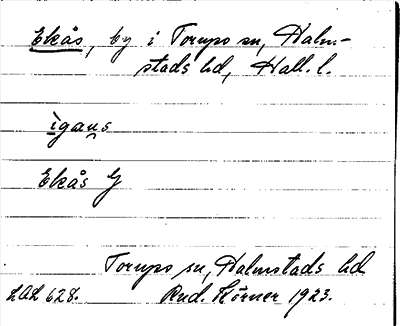 Ekås, by i Torups sn, Halm-
stads hd, Hall. l.
ìgaʉs
Ekås G
Torups sn, Halmstads hd
LAL 628. Rud. Körner 1923.